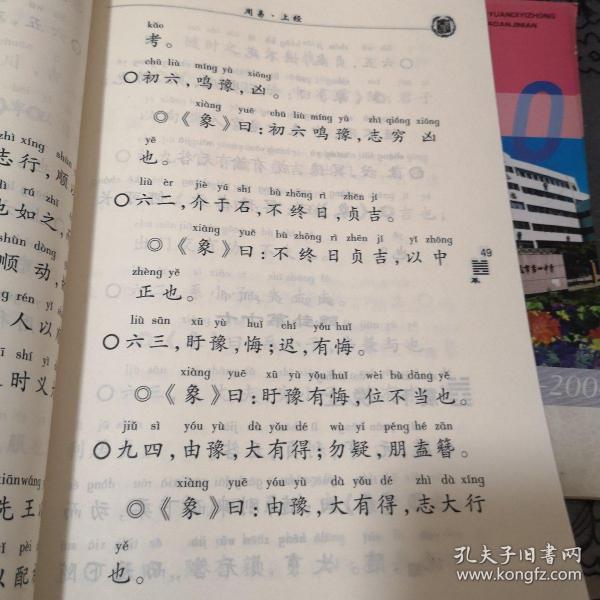 周易·上经
kǎo
考。
chū liù míng yù xiōng
○初六，鸣豫，凶。
xiàng yuē chū liù míng yù zhì qióng xiōng
◎《象》曰：初六鸣豫，志穷凶
yě
也。
liù èr jiè yú shí bù zhōng rì zhēn jí
○六二，介于石，不终日，贞吉。
xiàng yuē bù zhōng rì zhēn jí yǐ zhōng
◎《象》曰：不终日贞吉，以中
zhèng yě
正也。
liù sān xū yù huǐ chí yǒu huǐ
○六三，盱豫，悔；迟，有悔。
xiàng yuē xū yù yǒu huǐ wèi bù dāng yě
◎《象》曰：盱豫有悔，位不当也。
jiǔ sì yóu yù dà yǒu dé wù yí péng hé zān
○九四，由豫，大有得；勿疑，朋盍簪。
xiàng yuē yóu yù dà yǒu dé zhì dà xíng
◎《象》曰：由豫，大有得，志大行
yě
也。
49
zhì xíng shùn
志行，顺
rú zhī
也如之，而
shùn dòng
顺动，
rén yǐ
人以
shí yì
时义
xiān wáng
先王
pèi
以配
YUANXIYIZHONG
0
-200
孔夫子旧书网
www.kongfz.com